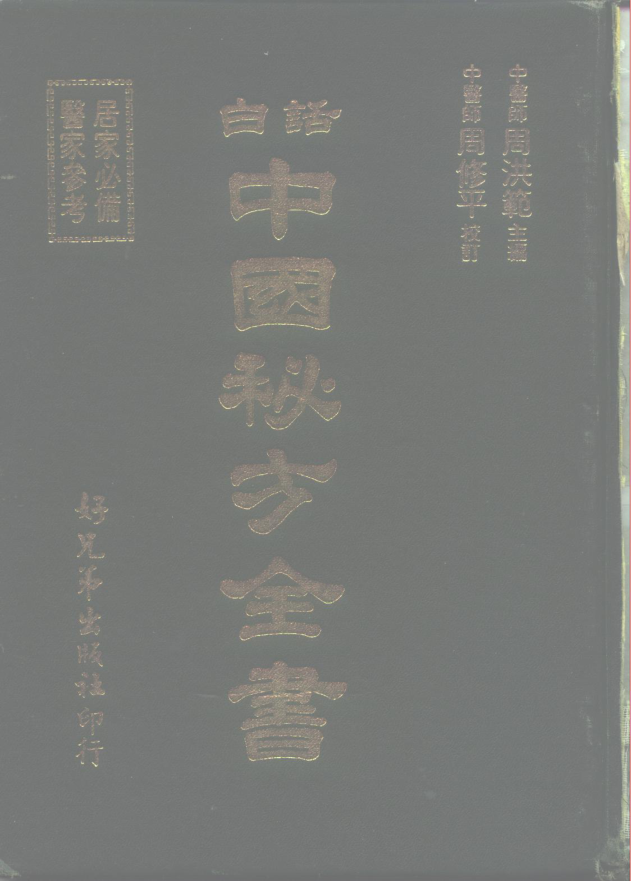 中醫師 周洪範 主編
中醫師 周修平 校訂
白話
中國秘方全書
居家必備
醫家參考
好兄弟出版社印行